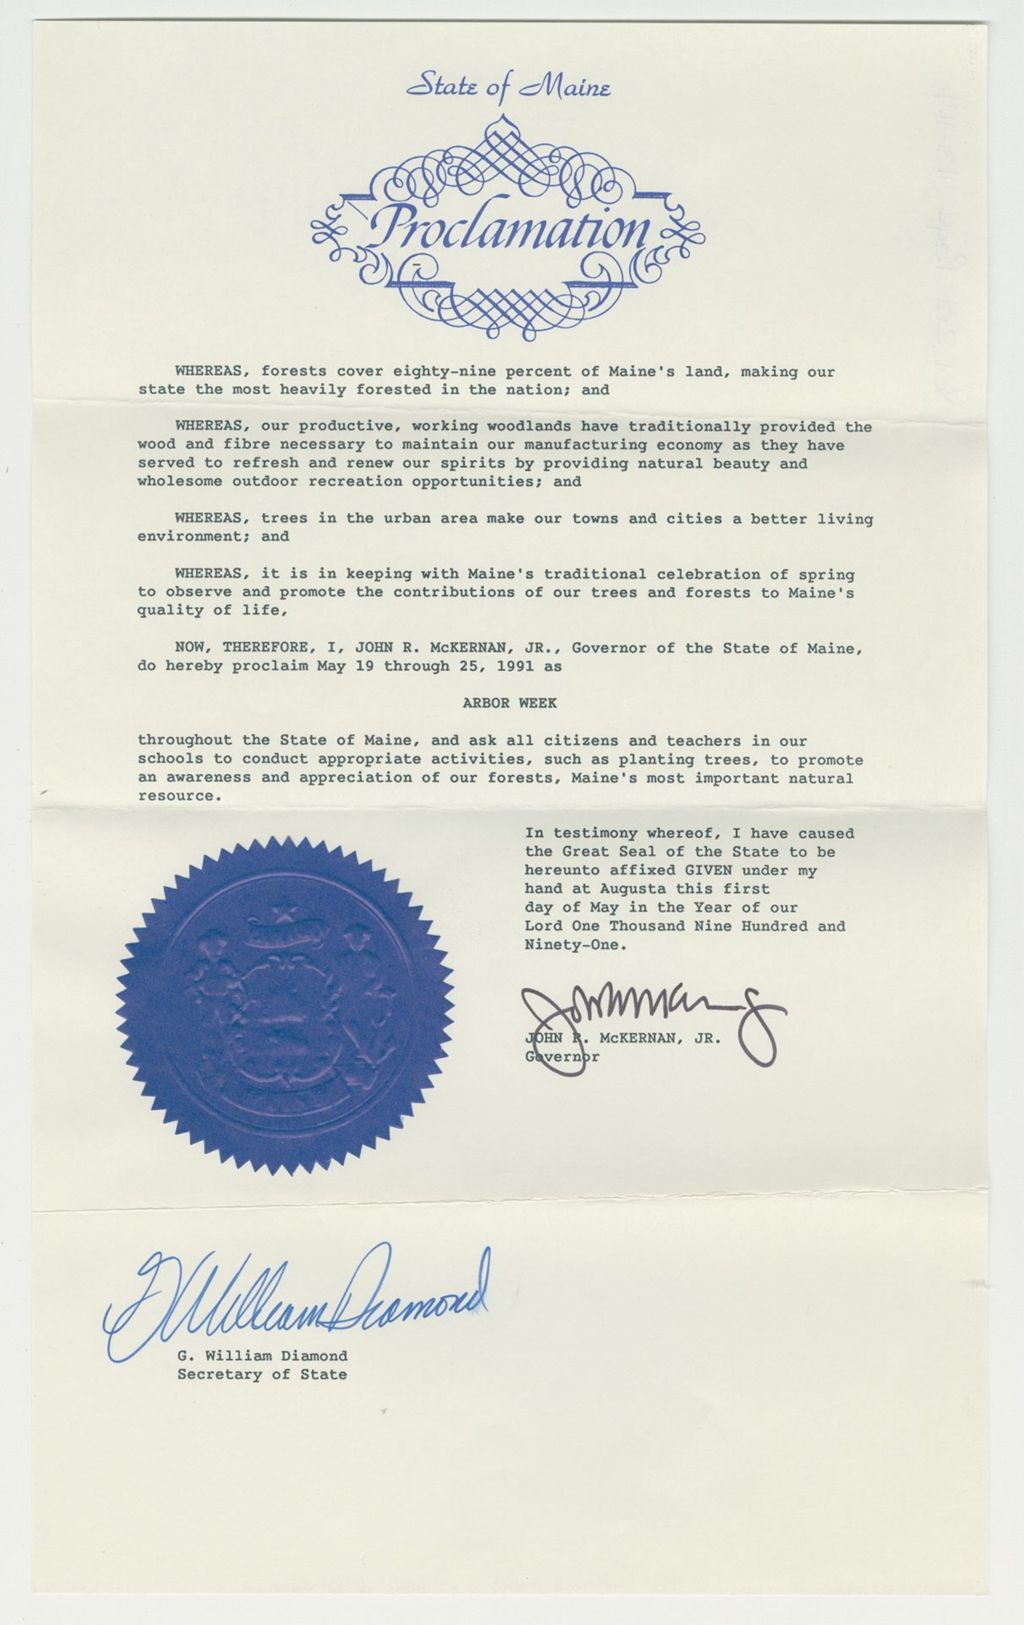 State of Maine
Proclamation
WHEREAS, forests cover eighty-nine percent of Maine's land, making our
state the most heavily forested in the nation; and
WHEREAS, our productive, working woodlands have traditionally provided the
wood and fibre necessary to maintain our manufacturing economy as they have
served to refresh and renew our spirits by providing natural beauty and
wholesome outdoor recreation opportunities; and
WHEREAS, trees in the urban area make our towns and cities a better living
environment; and
WHEREAS, it is in keeping with Maine's traditional celebration of spring
to observe and promote the contributions of our trees and forests to Maine's
quality of life,
NOW, THEREFORE, I, JOHN R. McKERNAN, JR., Governor of the State of Maine,
do hereby proclaim May 19 through 25, 1991 as
ARBOR WEEK
throughout the State of Maine, and ask all citizens and teachers in our
schools to conduct appropriate activities, such as planting trees, to promote
an awareness and appreciation of our forests, Maine's most important natural
resource.
In testimony whereof, I have caused
the Great Seal of the State to be
hereunto affixed GIVEN under my
hand at Augusta this first
day of May in the Year of our
Lord One Thousand Nine Hundred and
Ninety-One.
JOHN R. McKERNAN, JR.
Governor
G William Diamond
G. William Diamond
Secretary of State